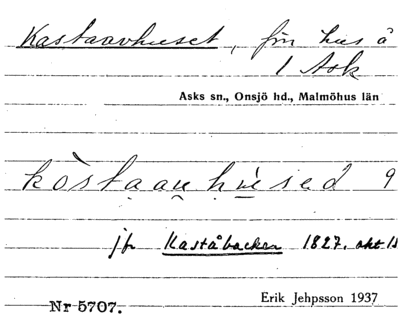 Kastaavhuset, för hus å
1 Ask
Asks sn., Onsjö hd., Malmöhus län
kòstaau hùsed 9
jfr Kaståbacken 1827. akt 15
Nr 5707. Erik Jehpsson 1937